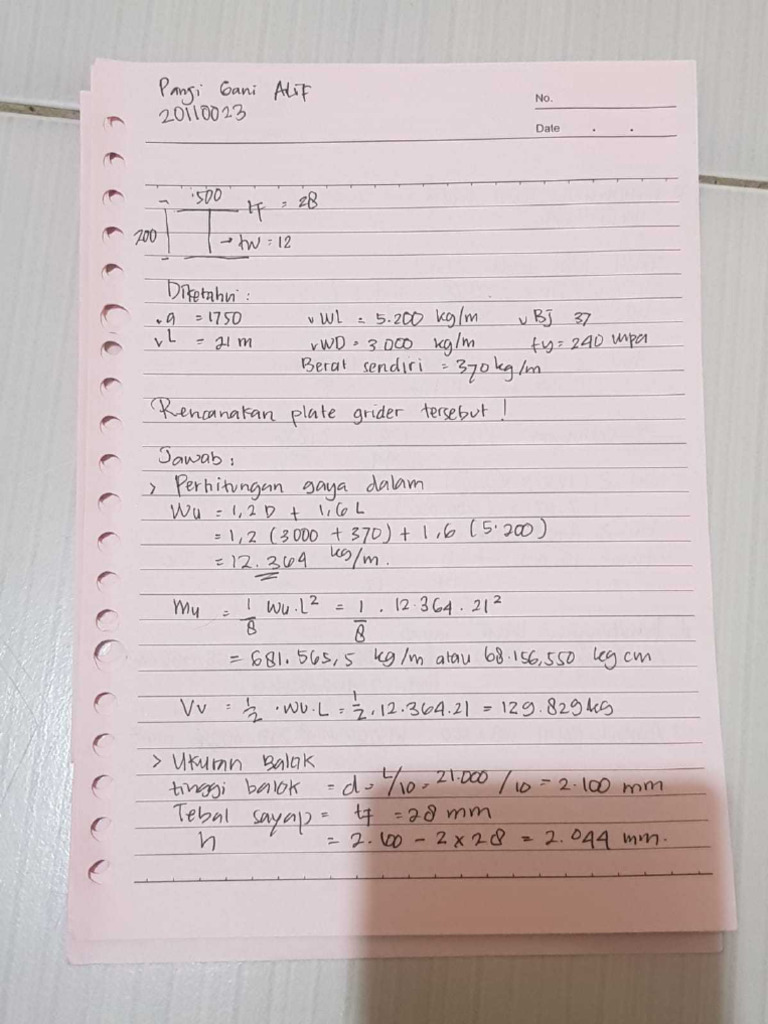 Pangi Gani Alif
20110023
No.
Date . .
500
tf = 28
200
→ tw = 12
Diketahui :
. a = 1750 v WL = 5.200 kg/m v Bj 37
v L = 21 m v WD = 3000 kg/m fy = 240 mpa
Berat sendiri = 370 kg/m
Rencanakan plate grider tersebut !
Jawab :
> Perhitungan gaya dalam
Wu = 1,2 D + 1,6 L
= 1,2 (3000 + 370) + 1,6 (5.200)
= 12.364 kg/m.
Mu = 1/8 Wu.L² = 1/8 . 12.364 . 21²
= 681.565,5 kg/m atau 68.156,550 kg cm
Vv = 1/2 . Wu.L = 1/2 . 12.364.21 = 129.829 kg
> Ukuran Balok
tinggi balok = d = L/10 = 21.000/10 = 2.100 mm
Tebal sayap = tf = 28 mm
h = 2.100 - 2 x 28 = 2.044 mm.